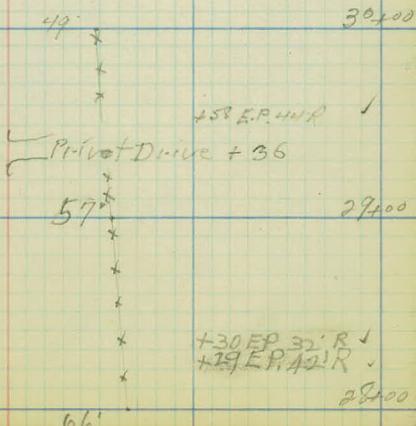 49' 30+00
+58 E.P. 44' R ✓
Privat Drive + 36
57' 29+00
+30 EP 32' R ✓
+29 E.P. 42' R ✓
28+00
66'